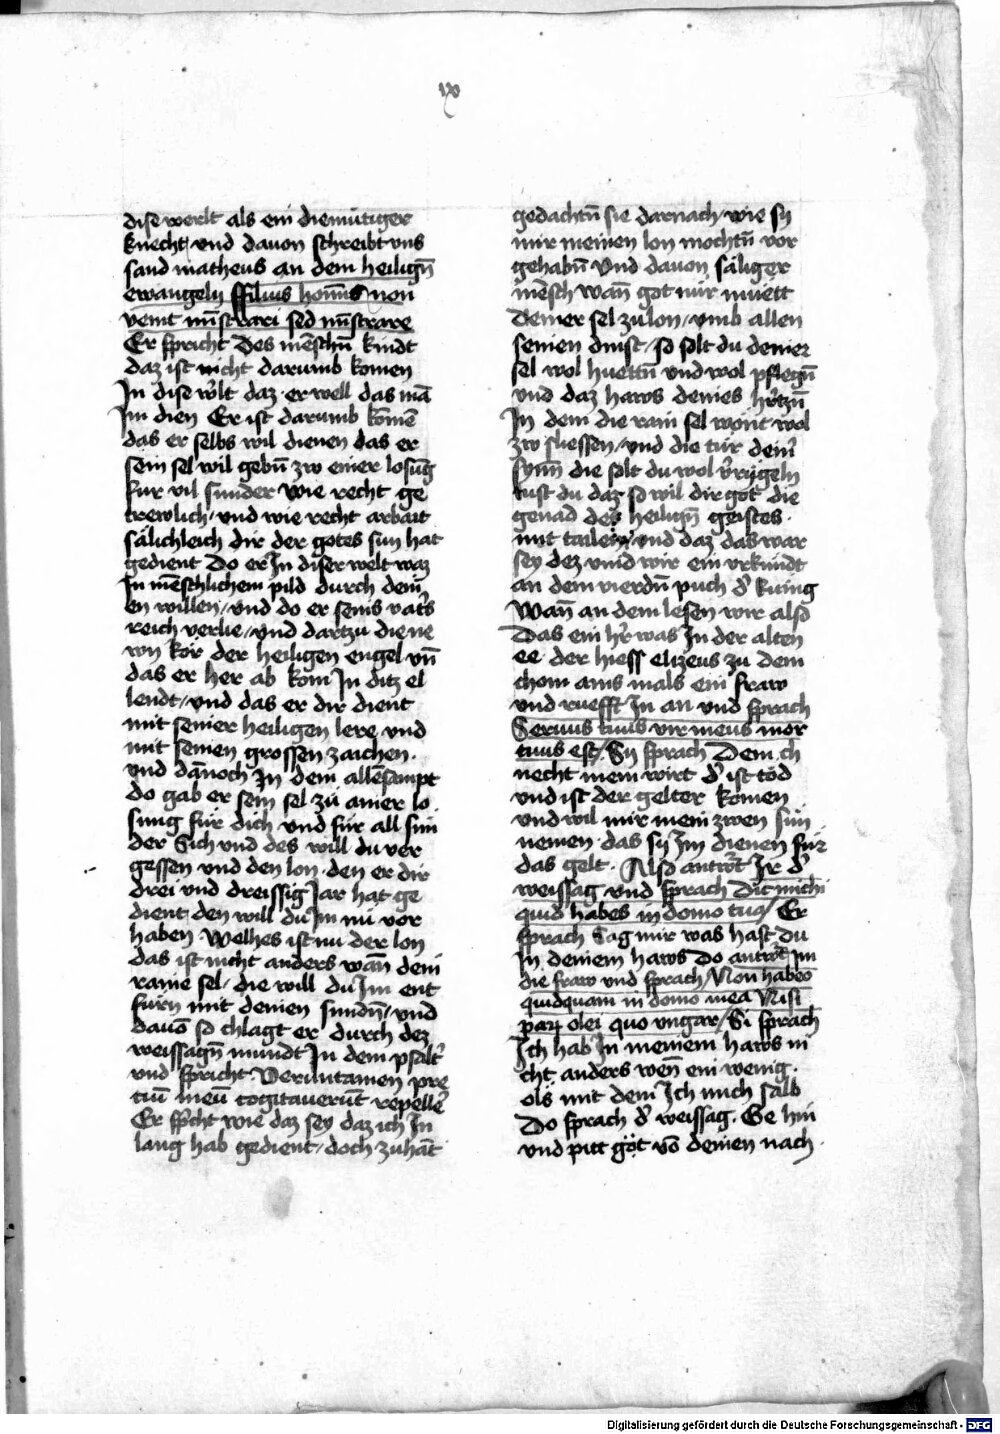 ix
dise werlt als ein diemütiger
knecht / vnd dauon schreibt vns
sand matheus an dem heilign̄
ewangely ffilius homīs non
venit mīstrari sed mīstrare
Er spricht Des mēschn̄ kindt
daz ist nicht darumb komen
In dise w̉lt daz er well das mā
Im dien Er ist darumb komē
das er selbs wil dienen das er
sein sel wil gebn̄ zw einer losūg
fur vil sunder Wie recht ge
trewlich / vnd wie recht arbait
sälichleich dir der gotes sun hat
gedient Do er In diser welt waz
In mēschlichem pild durch dein
en willen / vnd do er seins vat̉s
reich verlie / vnd dartzu die ne
wn kör der heiligen engel vn̄
das er her ab kom In ditz el
lendt / vnd das er dir dient
mit seiner heiligen lere vnd
mit seinen grossen zaichen.
vnd dānoch In dem allēsampt
do gab er sein sel zu ainer lo
sung für dich vnd für all sün
der Sich vnd des will du ver
gessen vnd den lon den er dir
drei vnd dreissig Jar hat ge
dient den will du Im nu vor
haben Welhes ist nu der lon
das ist nicht anders wan̄ dein
raine sel / die will du Im ent
fürn mit deinen sundn̄ / vnd
dauō so chlagt er durch dez
weissagn̄ mundt In dem psalt̉
vnd spricht. Veruntamen pre
tiū meū cogitauerūt repell̉e
Er spicht wie daz sey daz ich In
lang hab gedient / doch zuhāt
gedachtn̄ sie darnach wie sy
mir meinen lon mochtn̄ vor
gehabn̄ Vnd dauon säliger
mēsch wan̄ got nür muett
deiner sel zu lon / vmb allen
seinen dinst / so solt du deiner
sel wol huettn̄ vnd wol pflegn̄
vnd daz haws deines h̉rtzn̄
In dem die rain sel wont wol
zw sliessen / vnd die tür dein̉
synn̄ die solt du wol v̉rigeln
tust du daz so wil dir got die
genad des heilign̄ geistes
mit tailen / vnd daz das war
sey dez vind wir ein vrkundt
an dem vierdn̄ puch d̉ kunig
Wan̄ an dem lesen wir also
Das ein h̉r was In der alten
ee der hiess elizeus zu dem
chom ains mals ein fraw
vnd ruefft In an vnd sprach
Seruus tuus vir meus mor
tuus est / Sy sprach Dein ch
necht mein wirt d̉ ist töd
vnd ist der gelter komen
vnd wil mir mein zwen sün
nemen das sy Im dienen für
das gelt. Also antw̉t Ir d̉
weissag vnd sprach Dic michi
quid habes in domo tua / Er
sprach Sag mir was hast du
In deinem haws Do antw̉t Im
die fraw vnd sprach / Non habeo
quidquam in domo mea Nisi
par olei quo vngar / Si sprach
Ich hab In meinem haws ni
cht anders wen̄ ein wenig.
ols mit dem Ich mich salb
Do sprach d̉ weissag. Ge hin
vnd pitt got vō deinen nach
Digitalisierung gefördert durch die Deutsche Forschungsgemeinschaft - DFG